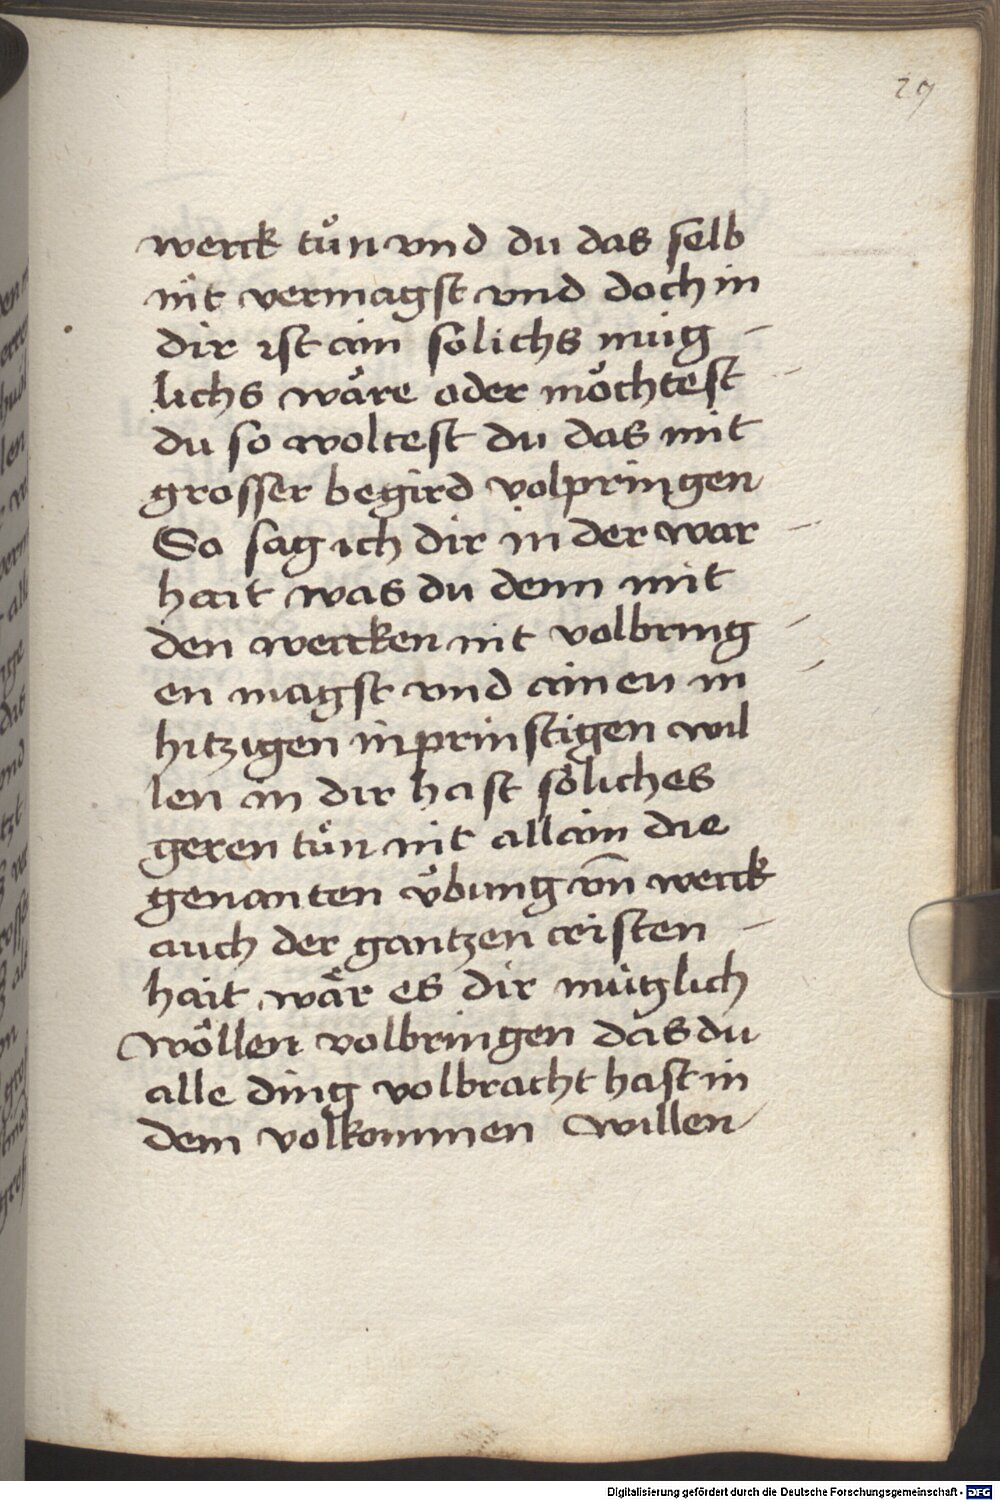 29
werck tůn vnd du das selb
nit vermagst vnd doch in
dir ist ain solichs müg -
lichs wäre oder möchtest -
du so woltest du das mit
grosser begird volpringen
So sag ich dir in der war -
hait was du denn mit
den wercken nit volbring -
en magst vnd ainen in -
hitzigen inprinstigen wil
len in dir hast söliches
geren tůn nit allain die
genanten übung vn̄ werck
auch der gantzen cristen -
hait wär es dir mützlich
wöllen volbringen das du
alle ding volbracht hast in
dem volkommen willen
Digitalisierung gefördert durch die Deutsche Forschungsgemeinschaft - DFG